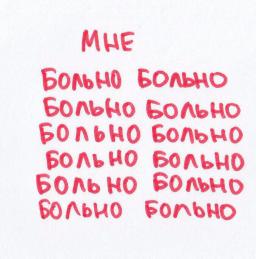 МНЕ
БОЛЬНО БОЛЬНО
БОЛЬНО БОЛЬНО
БОЛЬНО БОЛЬНО
БОЛЬНО БОЛЬНО
БОЛЬНО БОЛЬНО
БОЛЬНО БОЛЬНО